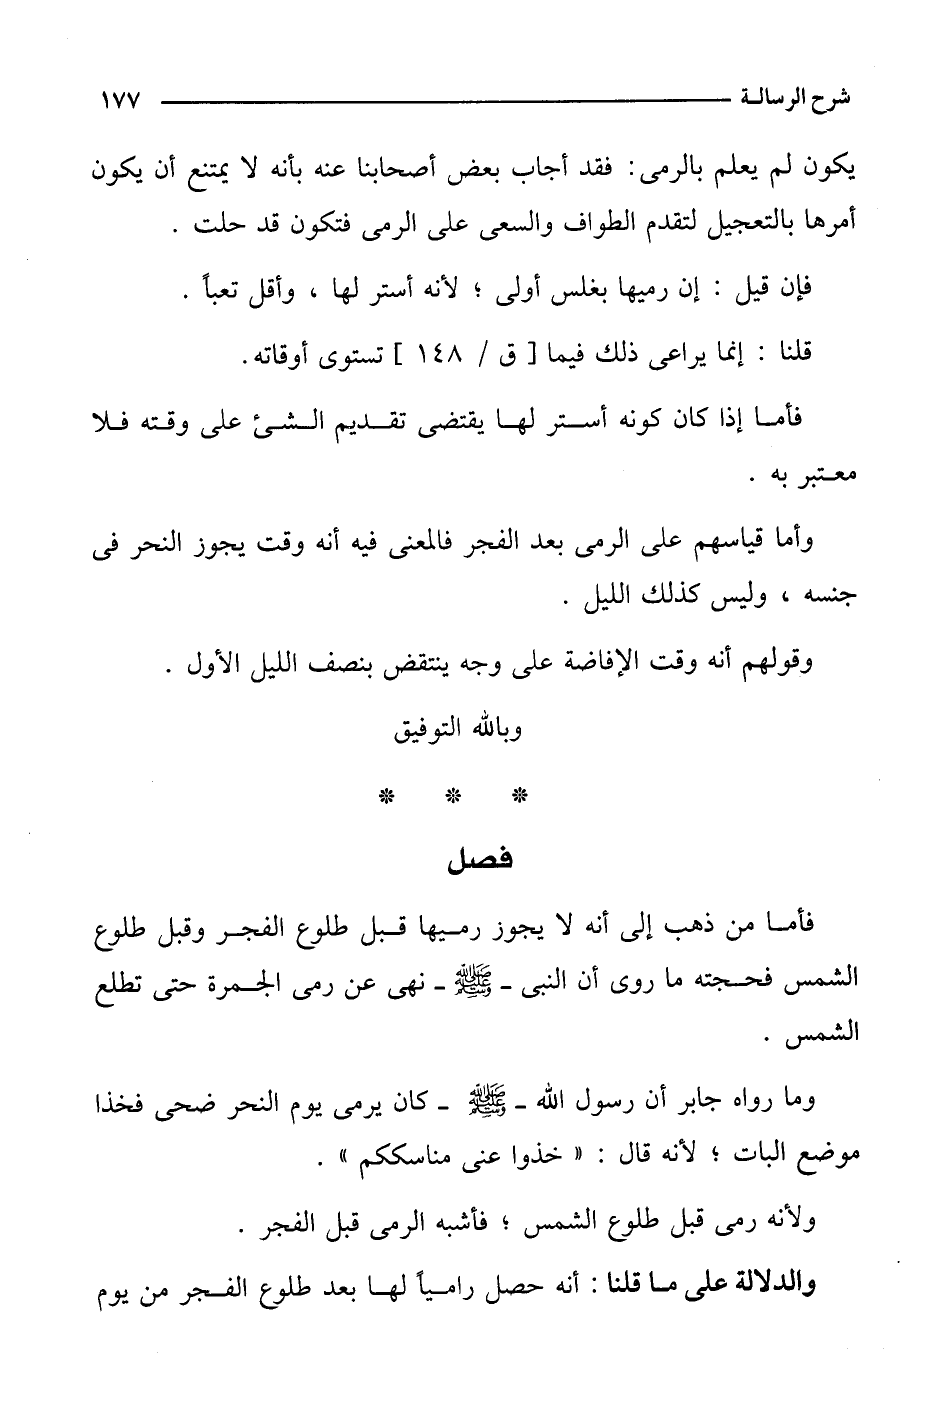 شرح الرسالة ١٧٧
يكون لم يعلم بالرمى: فقد أجاب بعض أصحابنا عنه بأنه لا يمتنع أن يكون
أمرها بالتعجيل لتقدم الطواف والسعى على الرمى فتكون قد حلت .
فإن قيل : إن رميها بغلس أولى ؛ لأنه أستر لها ، وأقل تعباً .
قلنا : إنما يراعى ذلك فيما [ ق / ١٤٨ ] تستوى أوقاته.
فأما إذا كان كونه أستر لها يقتضى تقديم الشئ على وقته فلا
معتبر به .
وأما قياسهم على الرمى بعد الفجر فالمعنى فيه أنه وقت يجوز النحر فى
جنسه ، وليس كذلك الليل .
وقولهم أنه وقت الإفاضة على وجه ينتقض بنصف الليل الأول .
وبالله التوفيق
* * *
فصل
فأما من ذهب إلى أنه لا يجوز رميها قبل طلوع الفجر وقبل طلوع
الشمس فحجته ما روى أن النبى ـ ﷺ ـ نهى عن رمى الجمرة حتى تطلع
الشمس .
وما رواه جابر أن رسول الله ـ ﷺ ـ كان يرمى يوم النحر ضحى فخذا
موضع البات ؛ لأنه قال : « خذوا عنى مناسككم » .
ولأنه رمى قبل طلوع الشمس ؛ فأشبه الرمى قبل الفجر .
والدلالة على ما قلنا : أنه حصل رامياً لها بعد طلوع الفجر من يوم